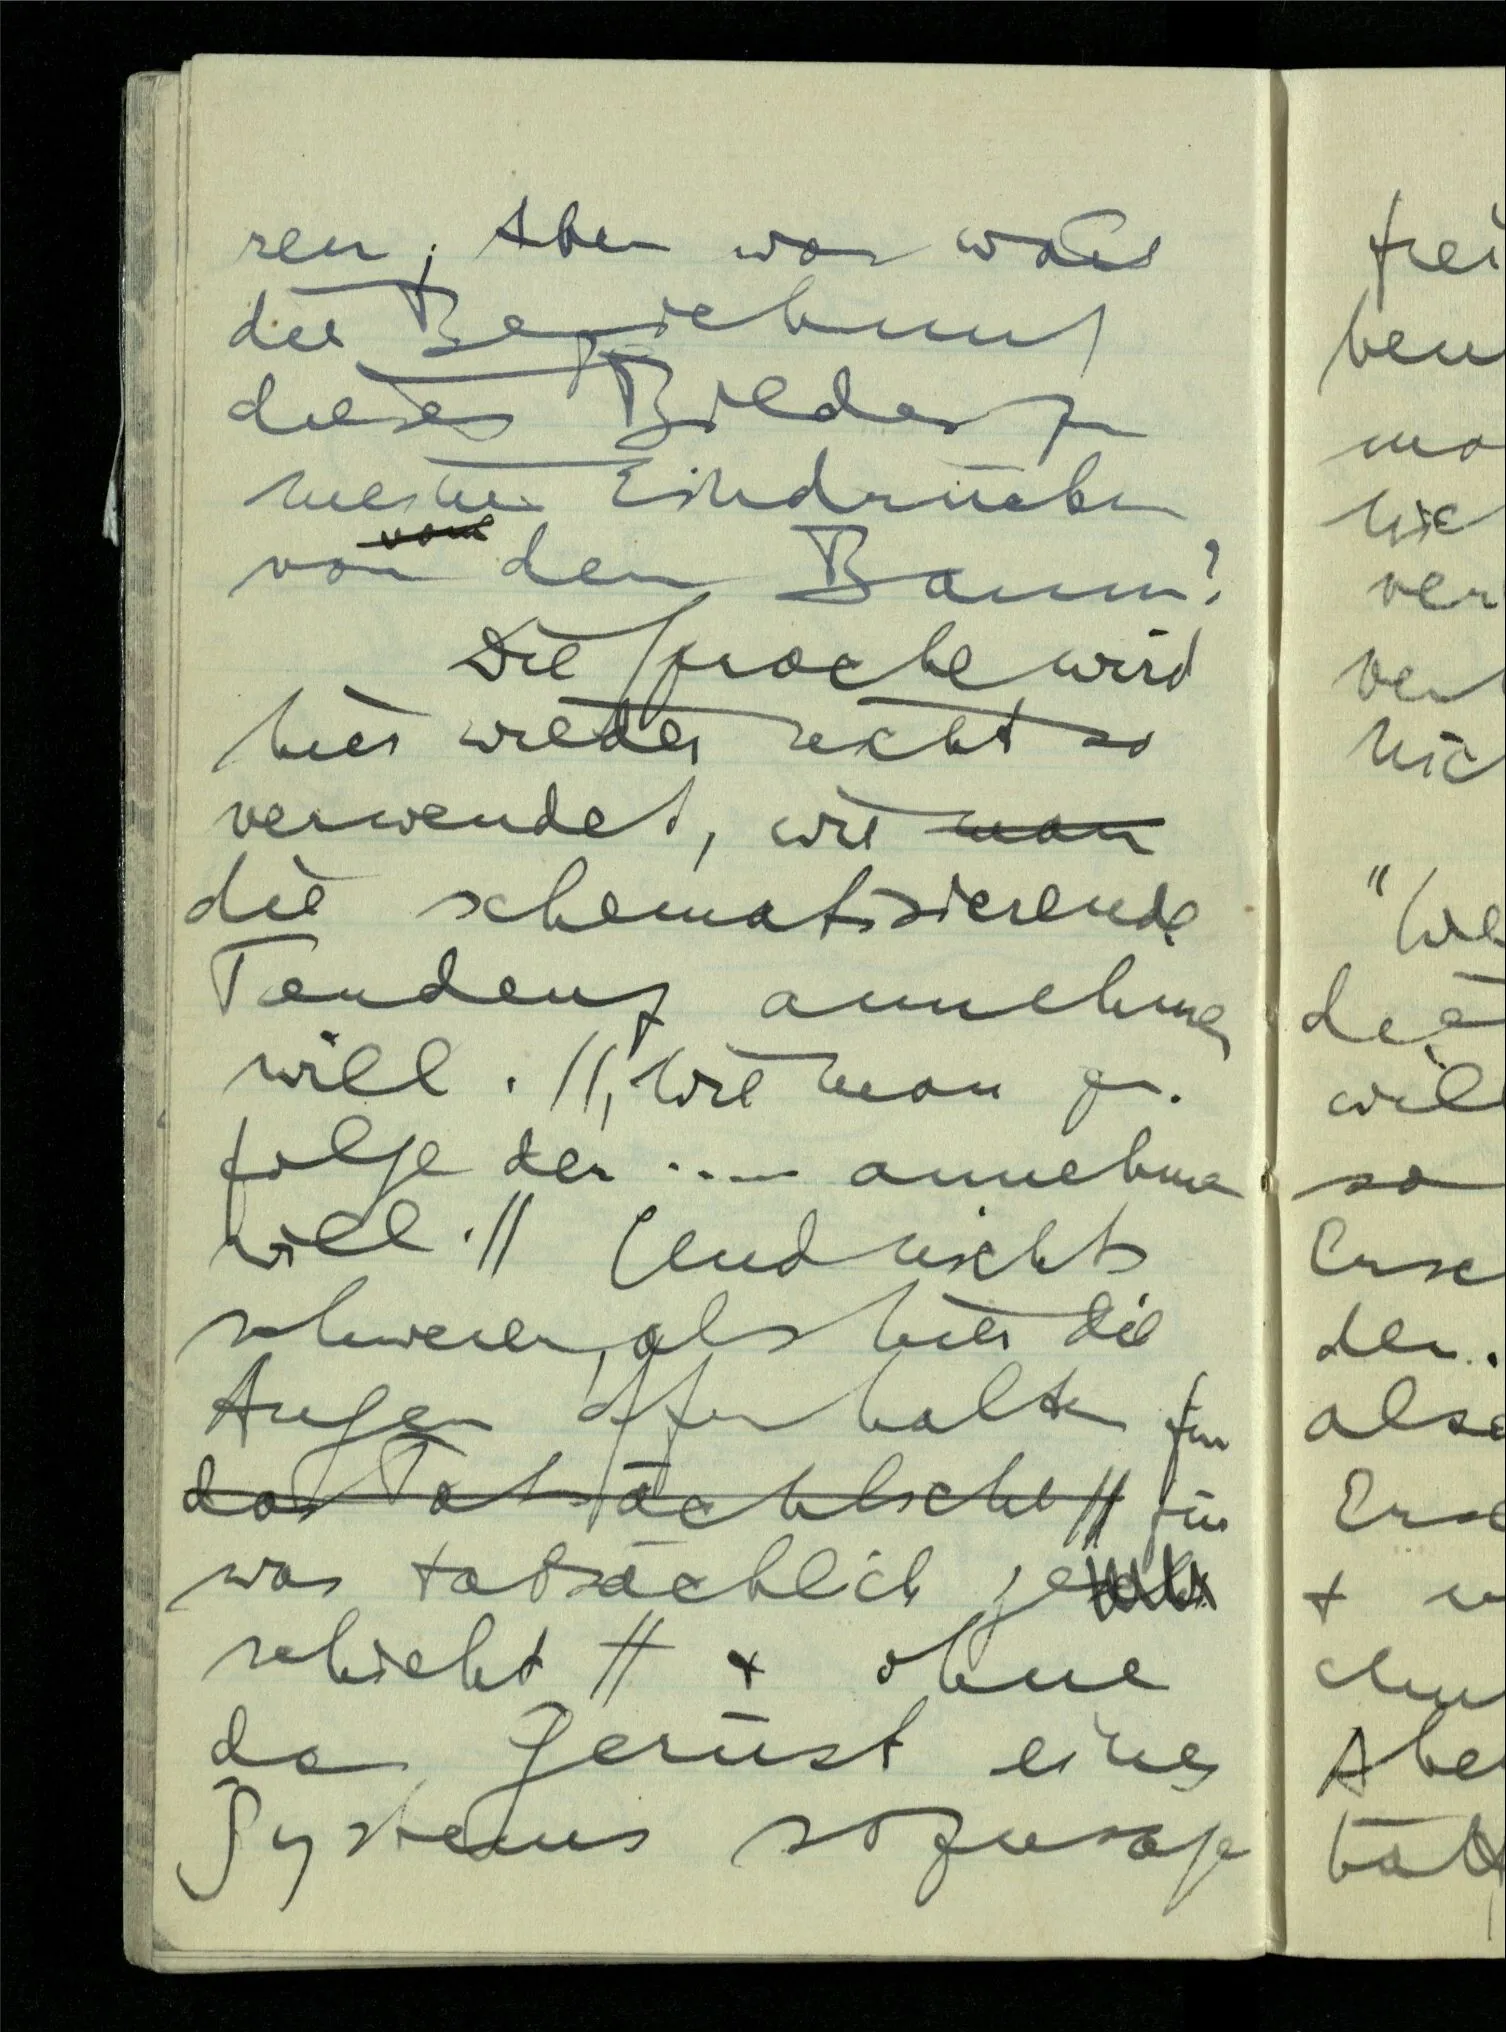 ren; Aber was wäre
die Beziehung
dieses Bildes zu
meinen Eindrücken
von vom dem Baum?
Die Sprache wird
hier wieder nicht so
verwendet, wie man
die schematisierende
Tendenz annehmen
will. //, wie man zu-
folge der .... annehmen
will.// Und nichts
schwerer, als hier die
Augen offen halten für
das Tatsächliche // für
was tatsächlich ge
schieht // + ohne
das Gerüst eines
Systems sozusage
frei
ben
ver
nic
will
so
den.
also
+
Abe